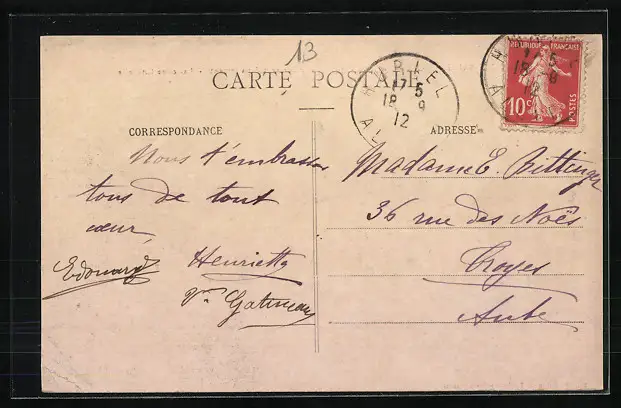 13
CARTE POSTALE
HURIEL
17 5
18 9
12
REPUBLIQUE FRANÇAISE
10c
POSTES
CORRESPONDANCE
ADRESSE
Nous t'embrassons
tous de tout
cœur
Edouard Henriette
Madame E. Bittinger
36 rue des Noës
Troyes
Aube